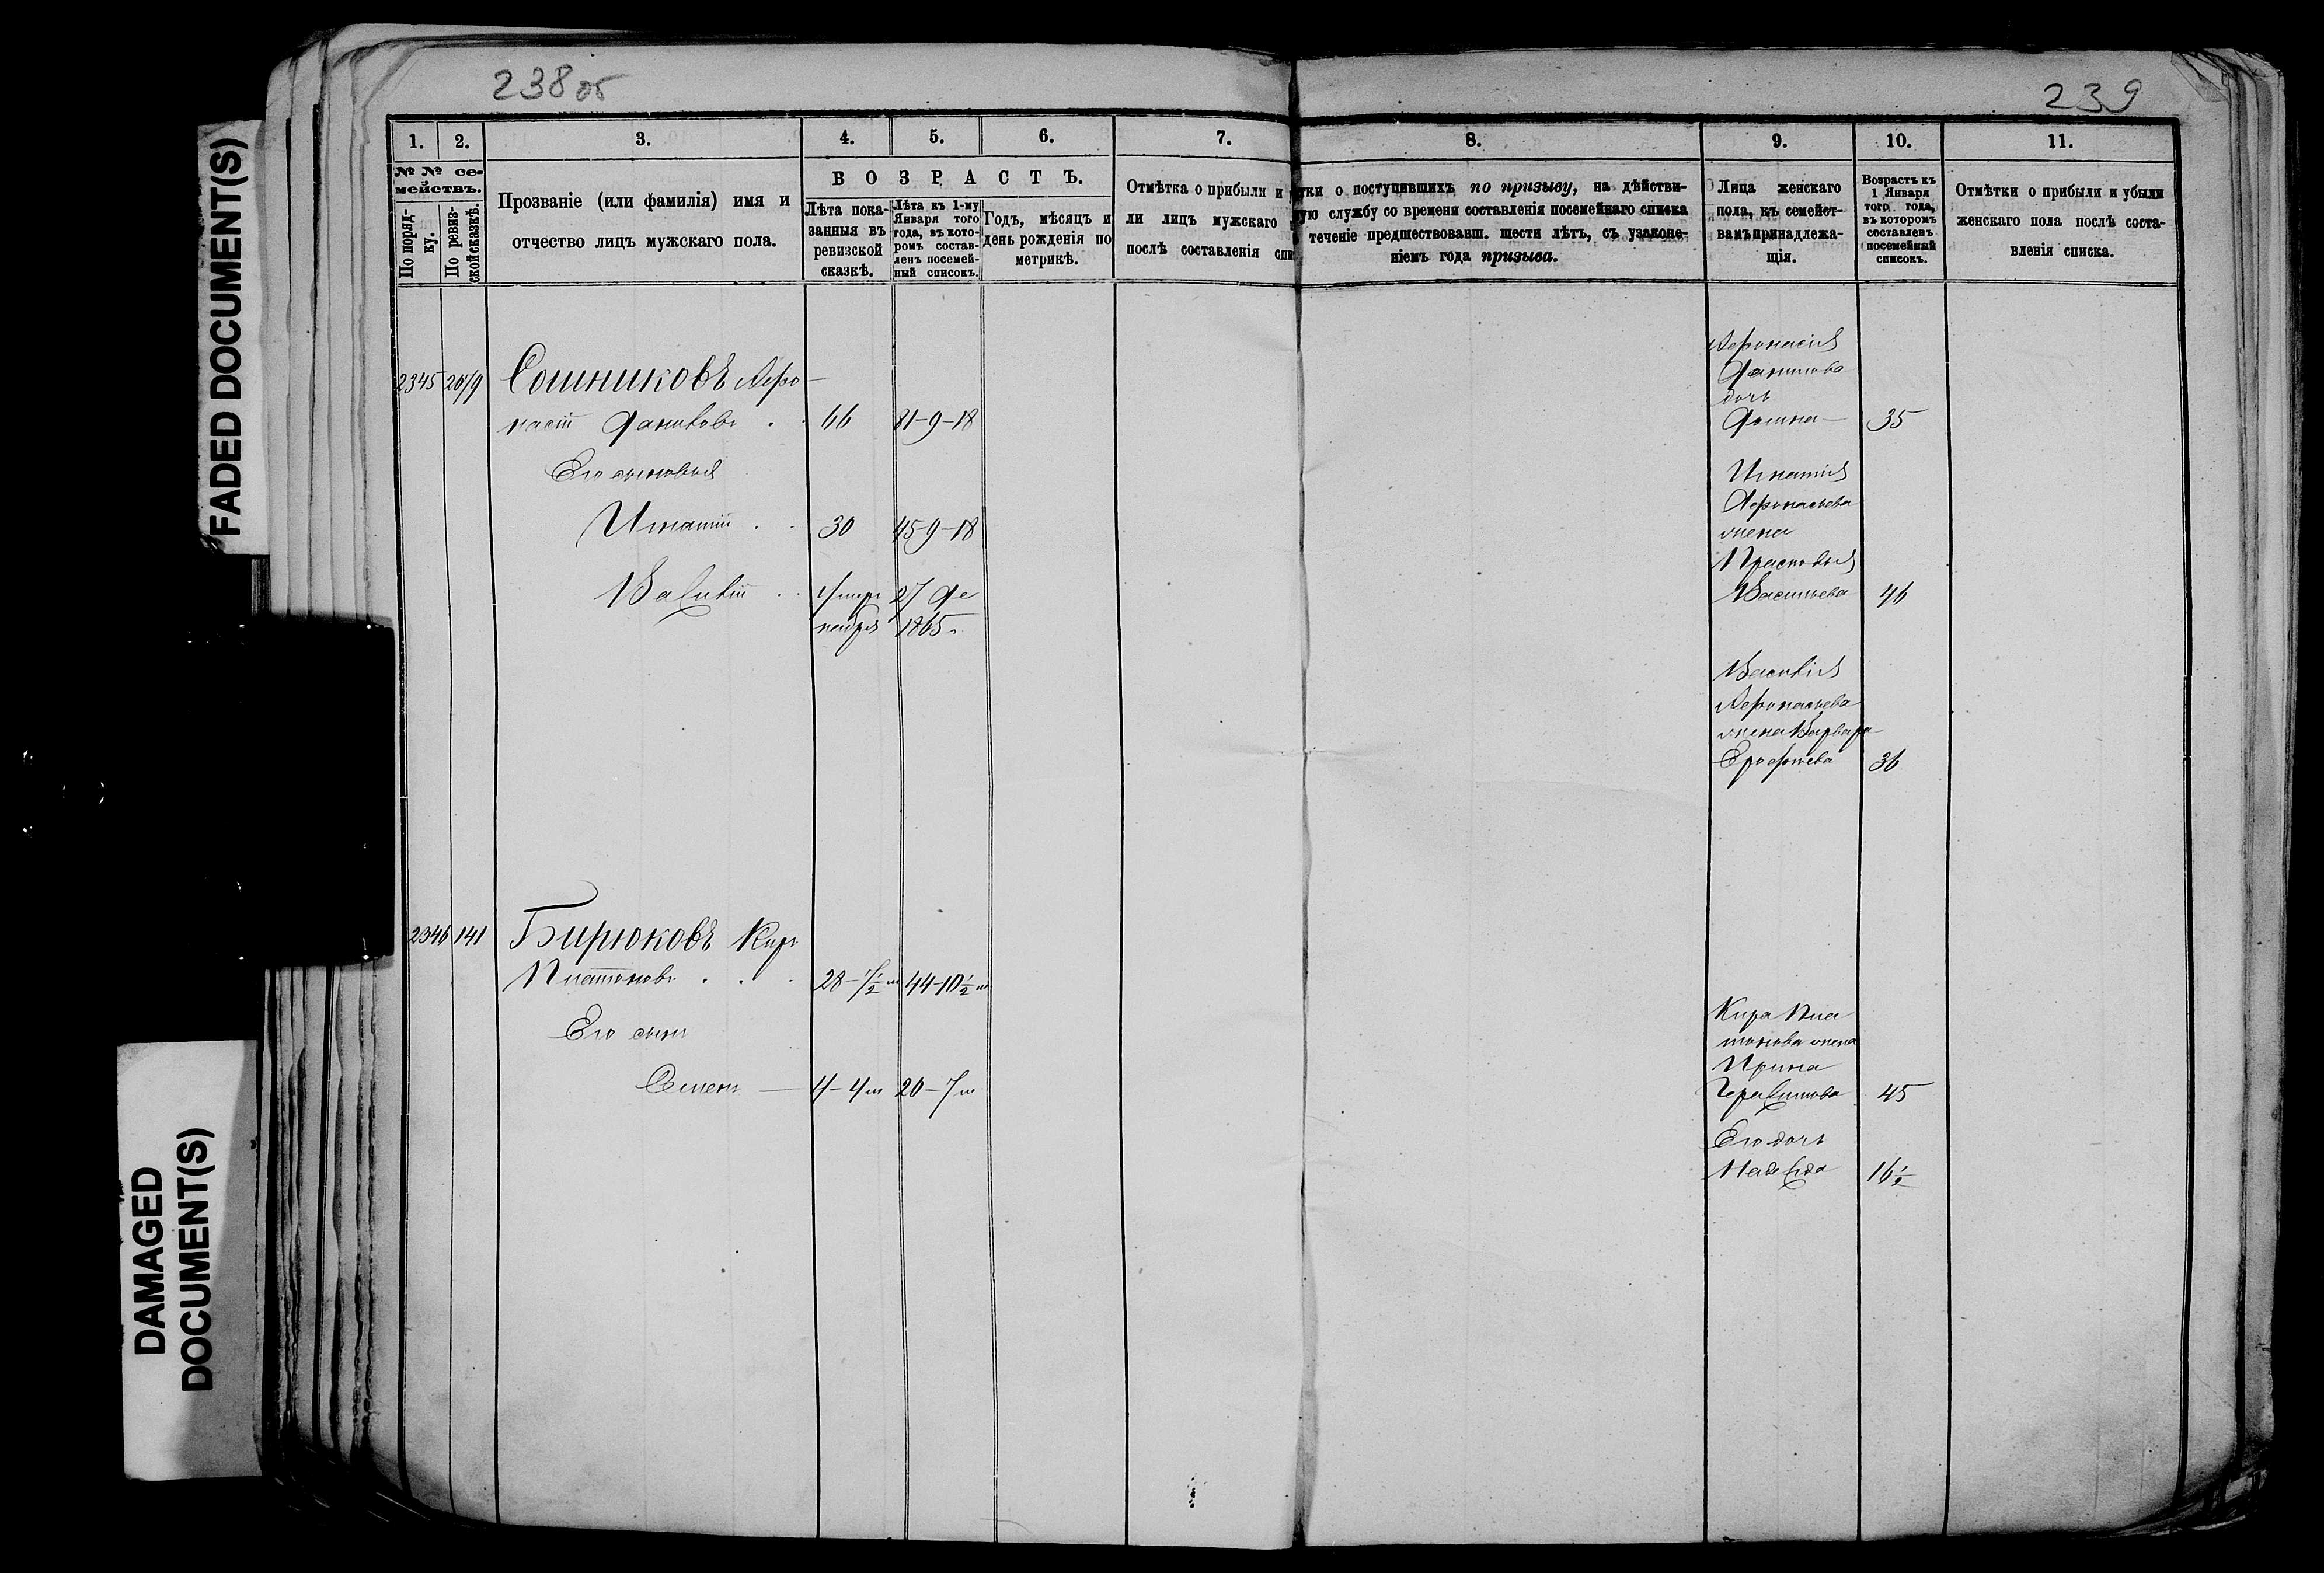 238 об
239
FADED DOCUMENT(S)
DAMAGED
DOCUMENT(S)
1.
2.
3.
4.
5.
6.
7.
8.
9.
10.
11.
№ № се-
мействъ.
По поряд-
ку.
По ревиз-
ской сказкѣ.
Прозваніе (или фамилія) имя и
отчество лицъ мужскаго пола.
ВОЗРАСТЪ.
Лѣта пока-
занныя въ
ревизской
сказкѣ.
Лѣта къ 1-му
Января того
года, въ кото-
ромъ состав-
ленъ посемей-
ный списокъ.
Годъ, мѣсяцъ и
день рожденія по
метрикѣ.
Отмѣтка о прибыли и
ли лицъ мужскаго
послѣ составленія спи
тки о поступившихъ по призыву, на дѣйстви-
ую службу со времени составленія посемейнаго списка
теченіе предшествовавш. шести лѣтъ, съ узаконе-
ніемъ года призыва.
Лица женскаго
пола, къ семейст-
вамъ принадлежа-
щія.
Возрастъ къ
1 Января
того года,
въ которомъ
составленъ
посемейный
списокъ.
Отмѣтки о прибыли и убыли
женскаго пола послѣ соста-
вленія списка.
2345
Сошниковъ Афо-
насій Даниловъ 66
Его сыновья
Игнатій 30 45-9-18
Василій умеръ 27 де
кабря 1865 г.
Афонасія
Данилова
дочь
Домна 35
Игнатія
Афонасьева
жена
Прасковья
Васильева 46
Василія
Афонасьева
жена Варвара
Ерофѣева 36
2346 141 Бирюковъ Киръ
Платоновъ 28-7½ м 44-10½ м
Его сынъ
Семенъ 4-4 м 20-7 м
Кира Пла
тонова жена
Ирина
Герасимова 45
Его дочь
Надежда 16½